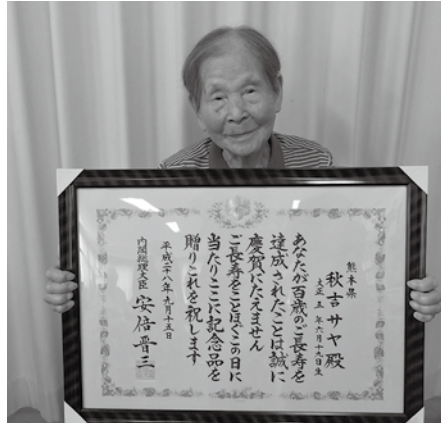 熊本県
秋吉サヤ殿
大正五年六月十九日生
あなたが百歳のご長寿を
達成されたことは誠に
慶賀にたえません
ご長寿をことほぐこの日に
当たりここに記念品を
贈りこれを祝します
平成二十八年九月十五日
内閣総理大臣 安倍晋三